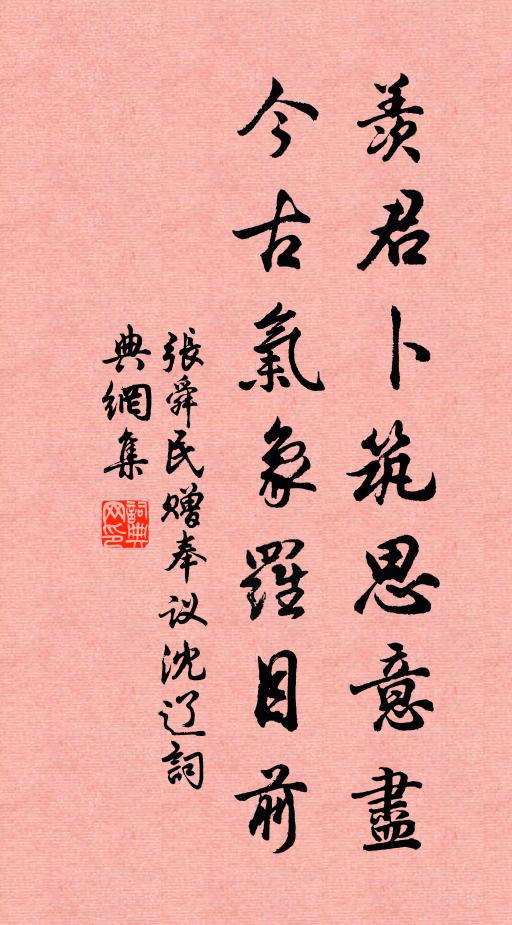 羨君卜筑思意盡
今古氣象羅目前
張舜民赠奉议沈辽詞
典網集
詞典网印